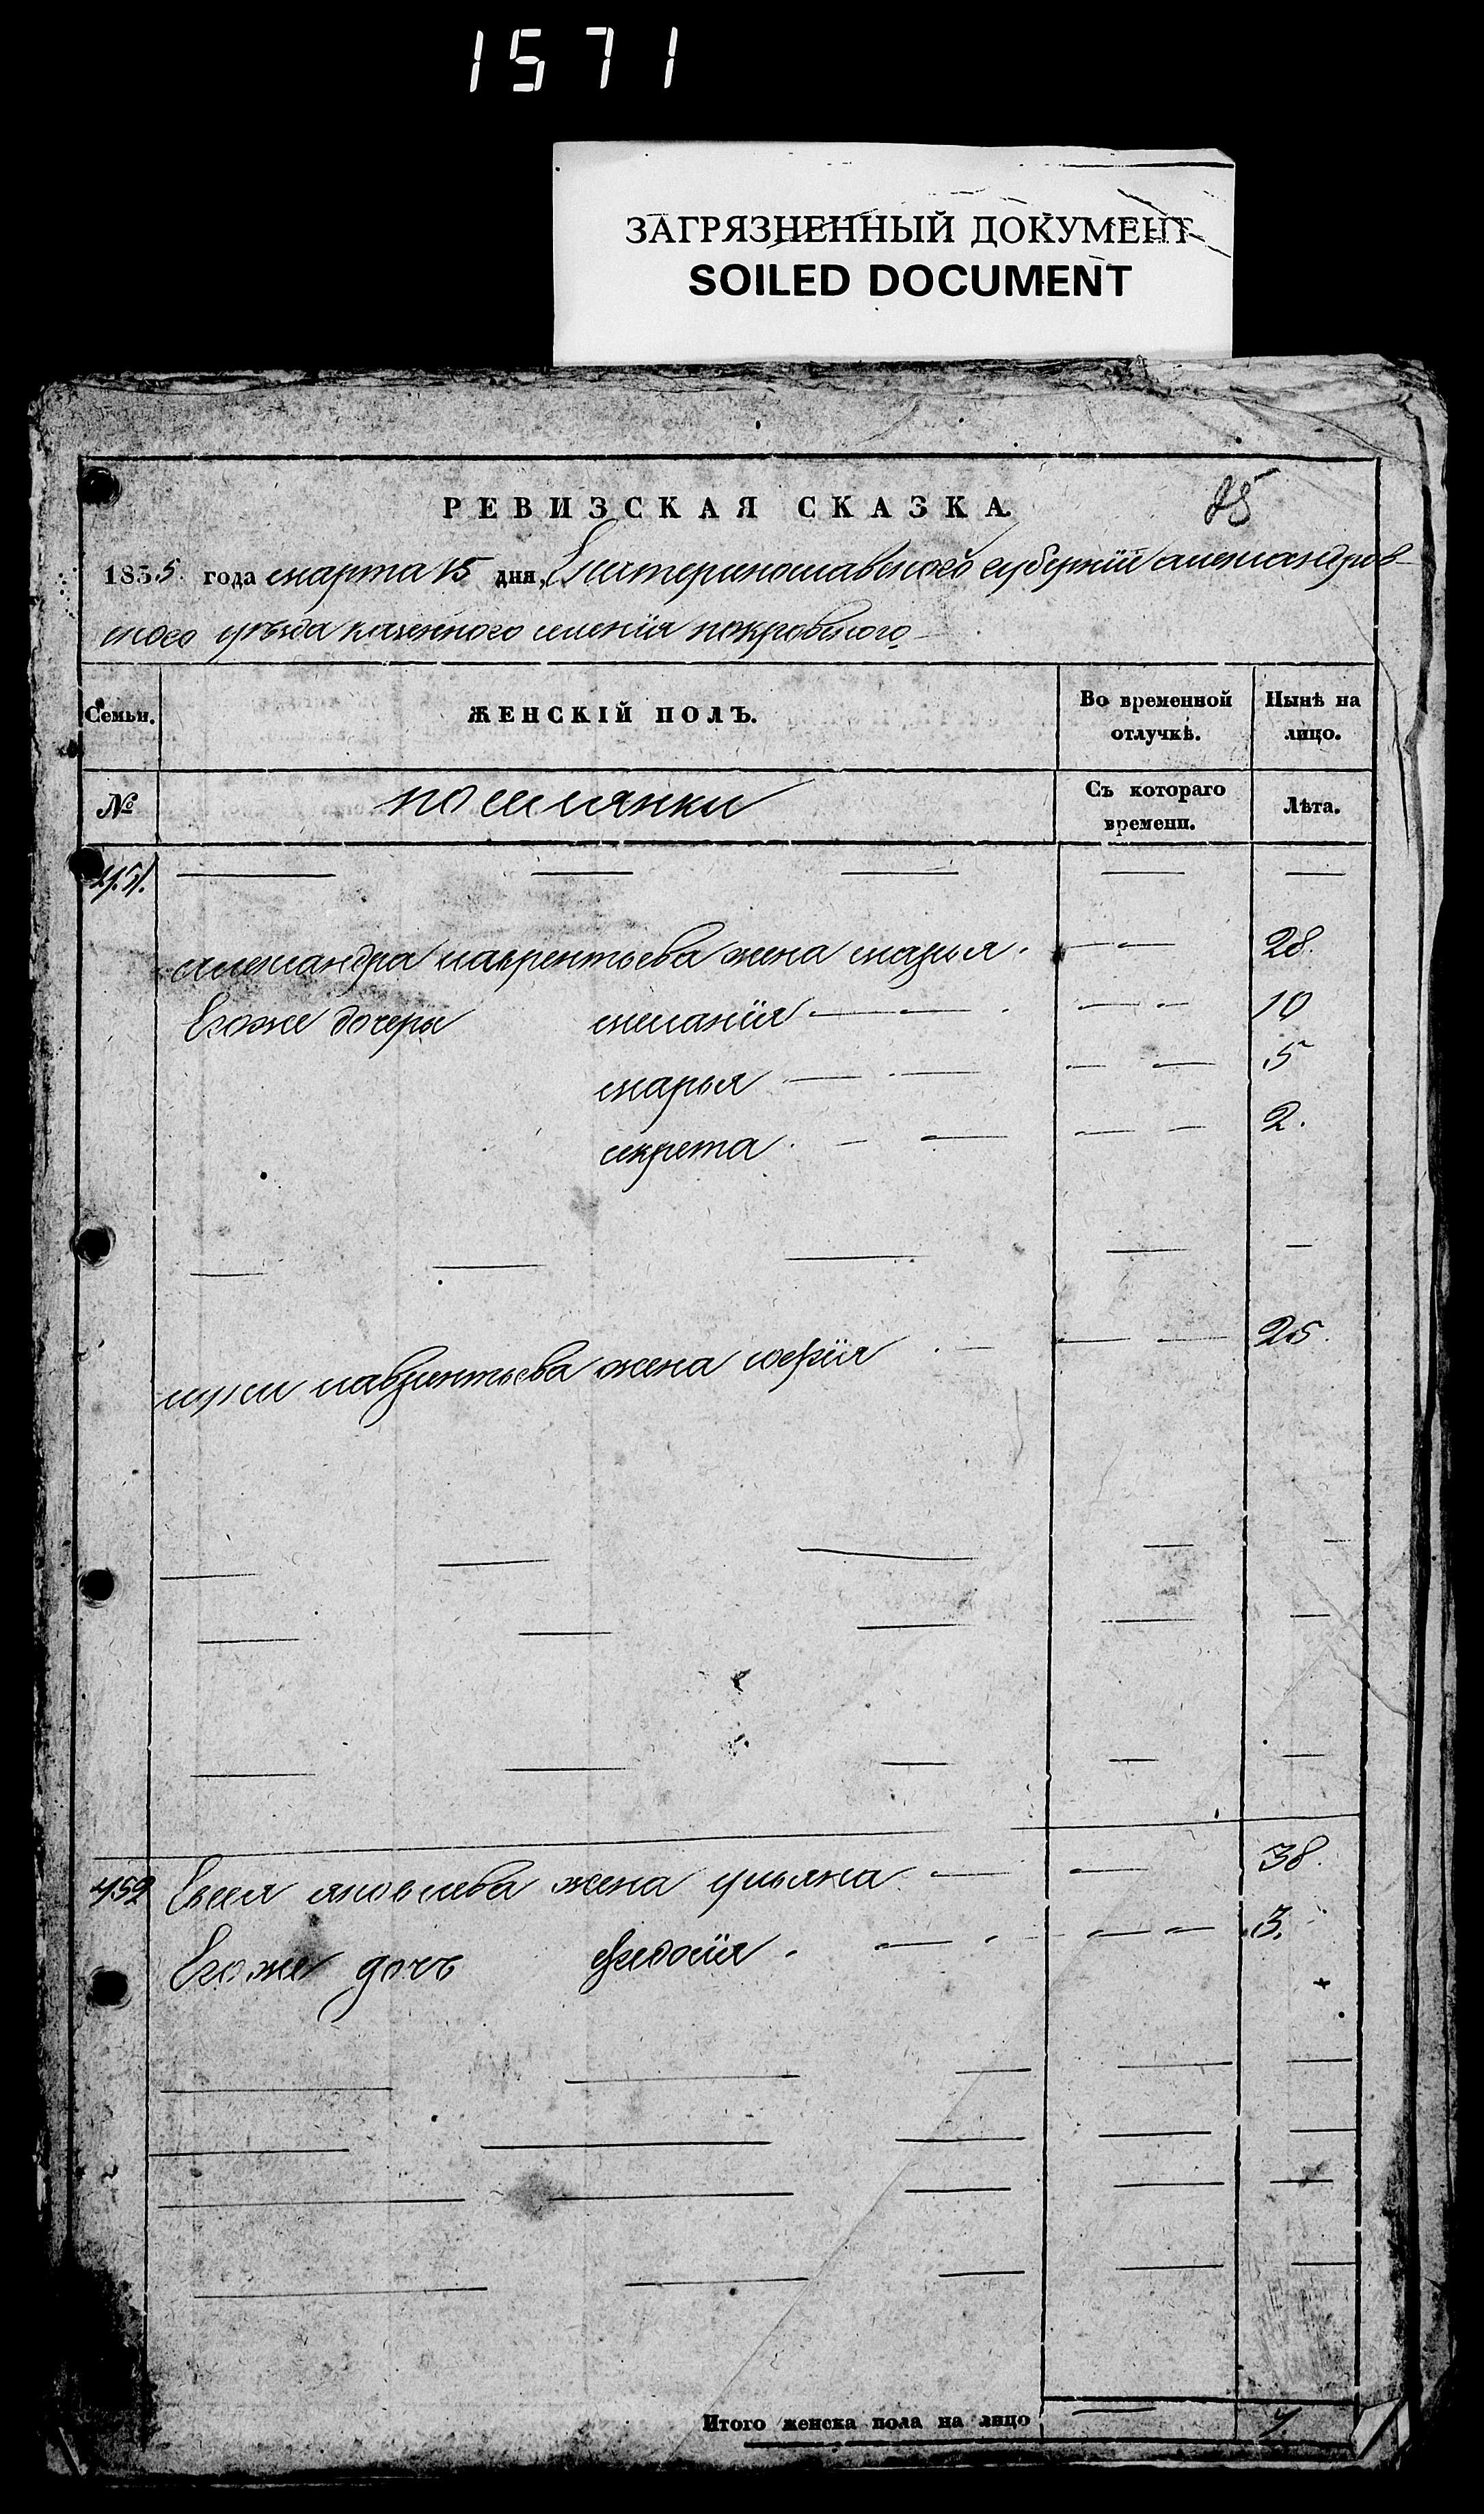 1571
ЗАГРЯЗНЕННЫЙ ДОКУМЕНТ
SOILED DOCUMENT
РЕВИЗСКАЯ СКАЗКА.
1855 года марта 15 дня, Екатеринославской губернии александров-
ского уѣзда казенного селенія покровского
Семьи.
ЖЕНСКІЙ ПОЛЪ.
Во временной отлучкѣ.
Нынѣ на лицо.
№
поселянки
Съ котораго времени.
Лѣта.
451.
александра лаврентьева жена марья. 28.
Егоже дочери меланія 10
марья 5
секрета 2.
лаврентьева жена софія 25.
452 Евсея яковлева жена ульяна 38.
Егоже дочь федосія. 3.
Итого женска пола на лицо 7